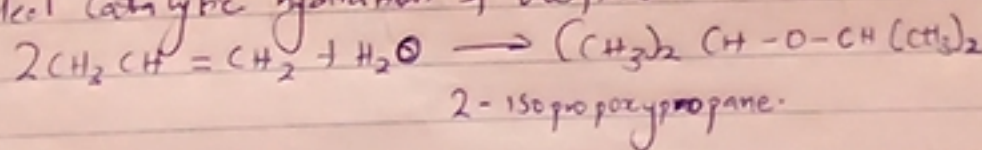 Catalytic
2CH₃CH = CH₂ + H₂O ⟶ (CH₃)₂ CH - O - CH (CH₃)₂
2 - isopropoxypropane.